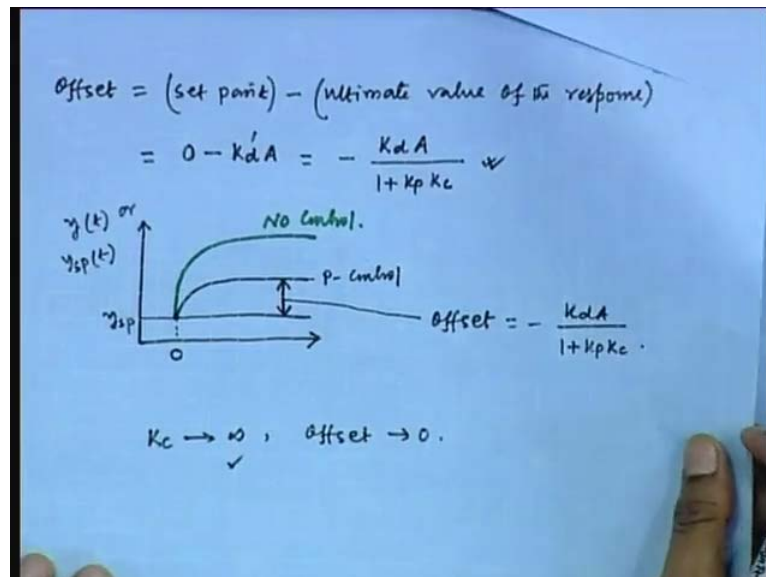 Offset = (set point) - (ultimate value of the response)
= 0 - Kd'A = - KdA / 1 + Kp Kc
y(t) or
ysp(t)
No Control.
P- Control
ysp
Offset = - KdA / 1 + KpKc .
0
Kc → ∞ , Offset → 0.